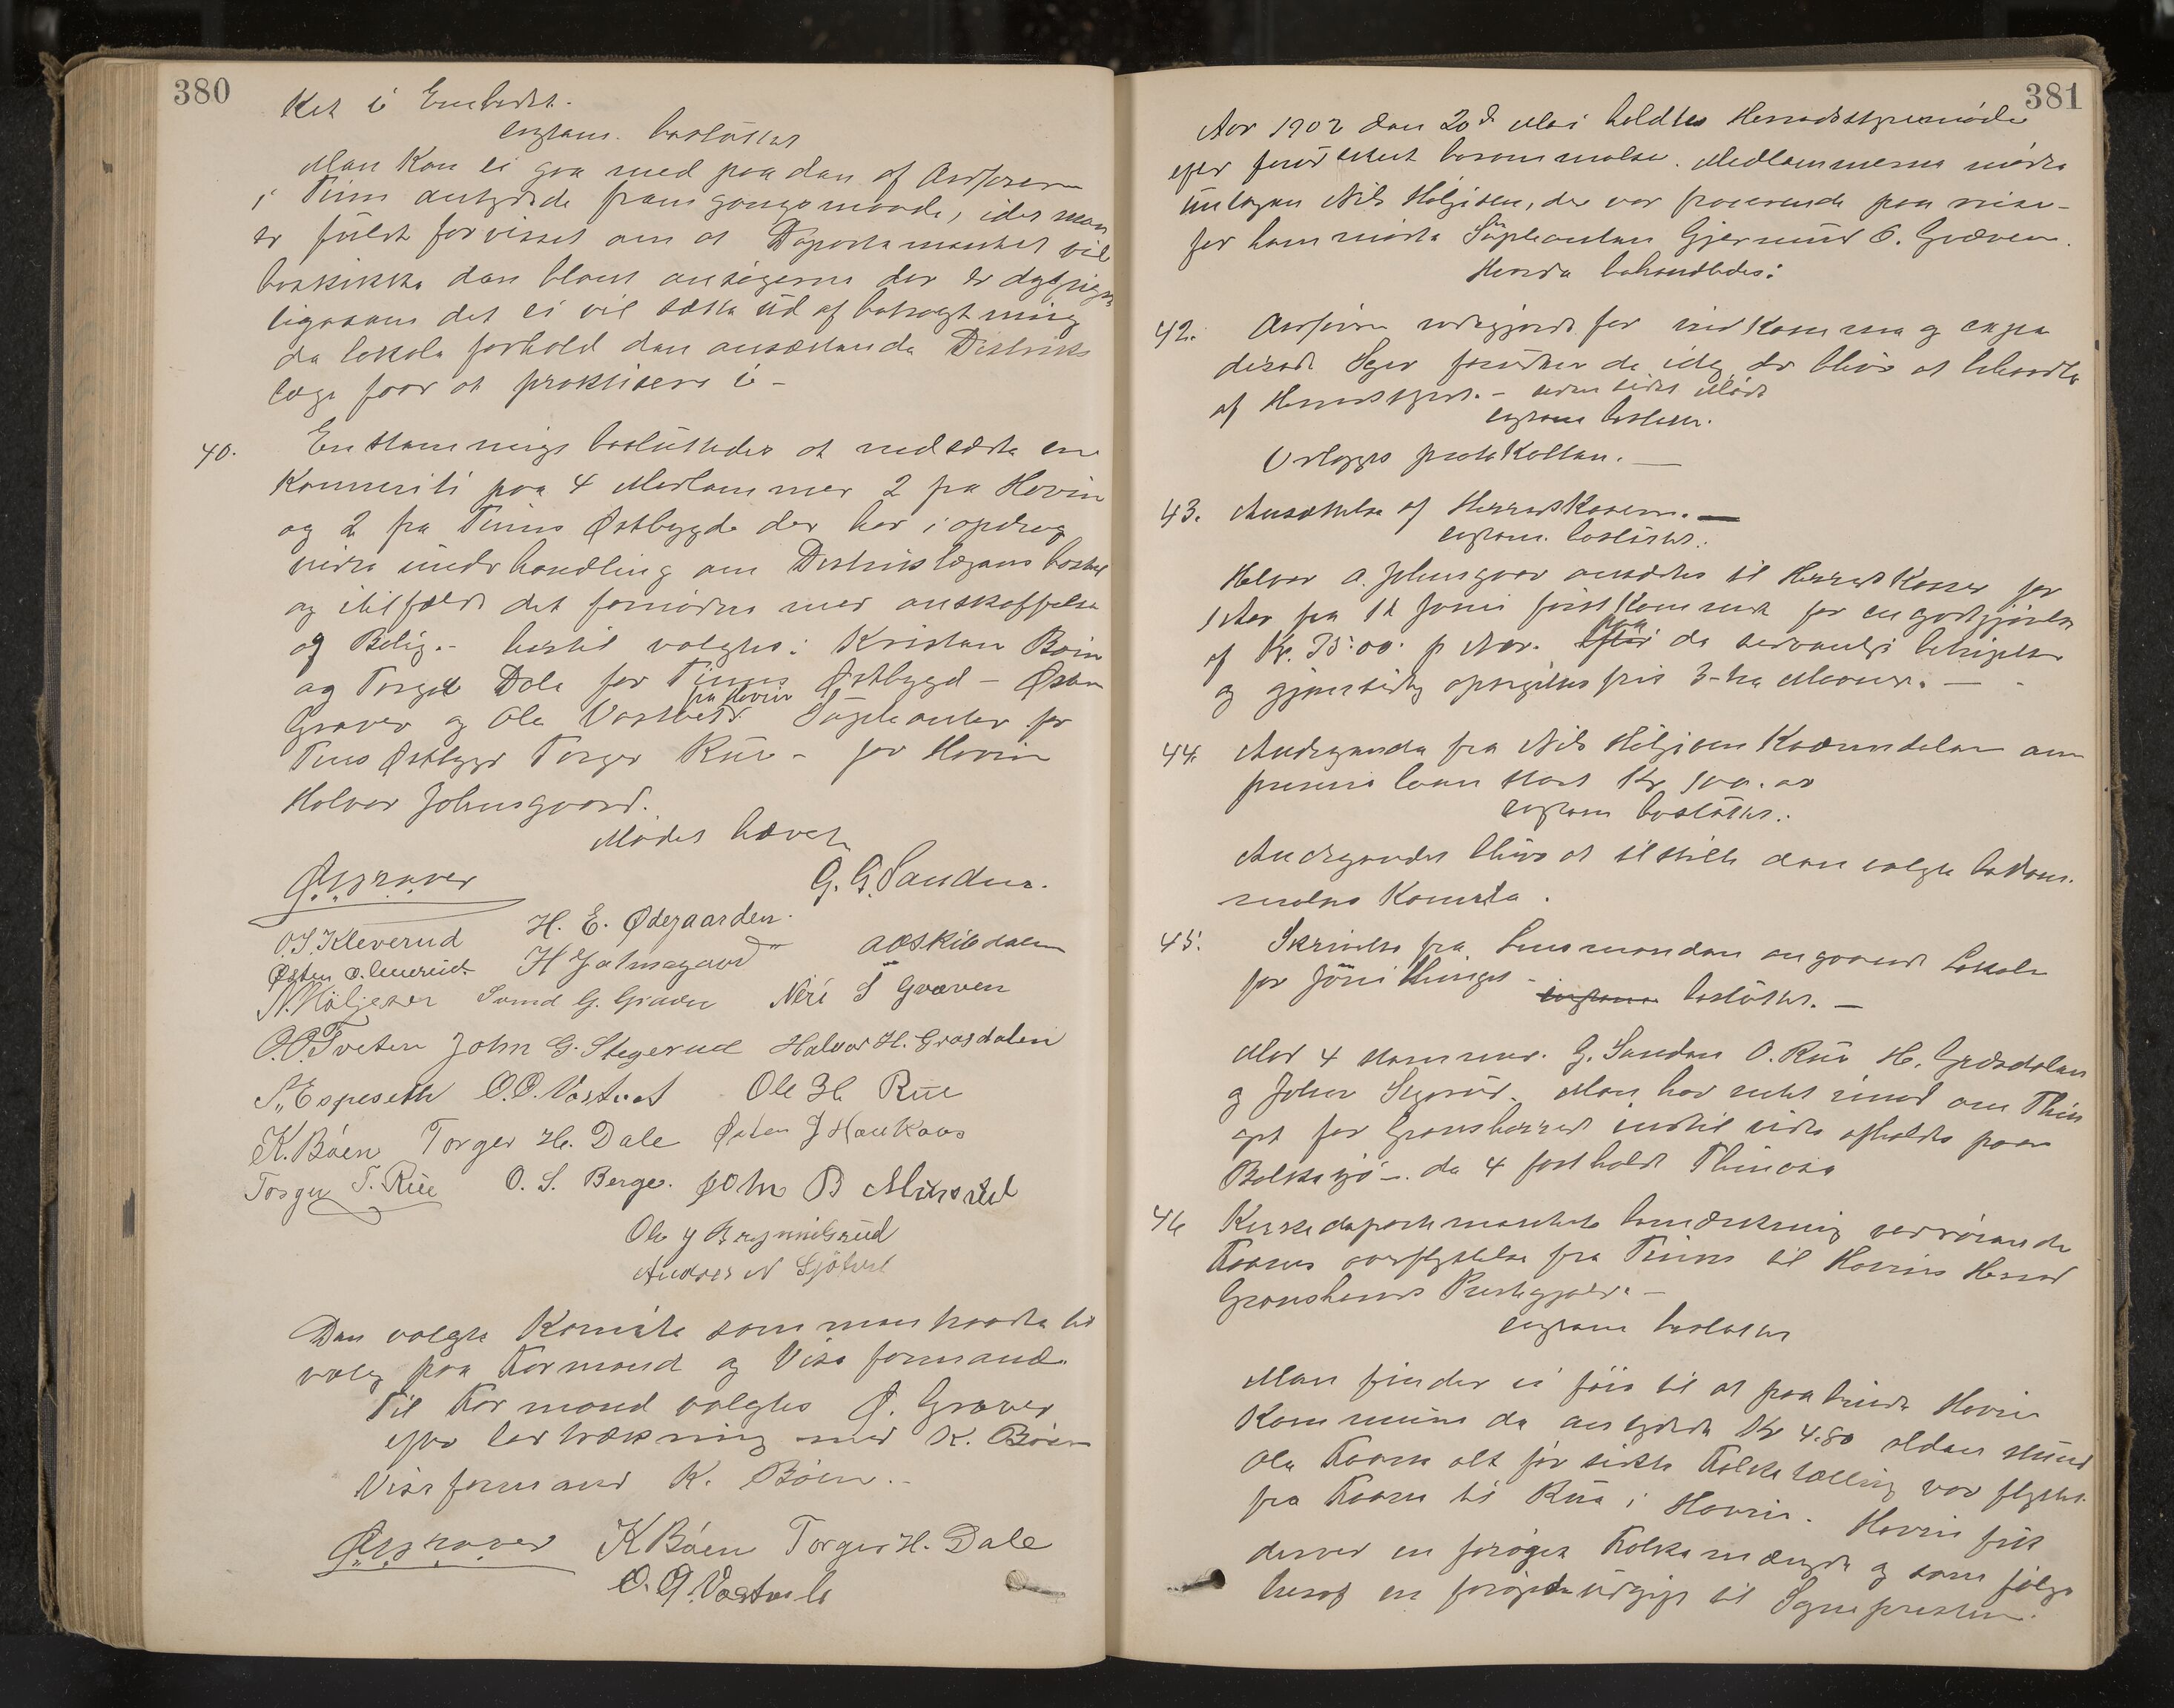 380
ket i Embedet.
enstem. besluttet
Man kan ei gaa med paa den af Ordføreren
i Tinn antydede fremgangsmaade, idet man
er fuldt forvisset om at Departementet vil
beskikke den blant ansøgerne der er dygtigst
ligesom det ei vil sætte ud af betragtning
de lokale forhold den ansættende Distrikts
læge faar at praktisere i -
40. Enstemmigt besluttedes at nedsætte en
Kommite paa 4 Medlemmer 2 fra Hovin
og 2 fra Tinns Østbygde der har i opdrag
videre underhandling om Distriktslægens bosted
og itilfælde det fornødne med anskaffelse
af Bolig.- hertil valgtes: Kristen Bøen
og Torger Dale for Tinns Østbygd - Østen
fra Hovin
Graver og Ole Vastveit Supleanter for
Tins Østbygd Torger Rue - for Hovin
Halvor Johnsgaard.
Mødet hævet
Ø. Graver G. G. Sanden.
O. S. Kleverud H. E. Ødegaarden.
Østen O. H Jonsgaard
N. Høljesen Svend G. Graven Neri S Græven
O. O. Tveten John G. Stegerud Halvor H. Grosdalen
S. Espeseth O. O. Vastveit Ole H. Rue
K. Bøen Torger H. Dale Østen J Haukaas
Torger T. Rue O. S. Berge. John B
Ole
Andres N
Den valgte Komite sammentraadte til
valg paa Formand og Viseformand.
Til Formand valgtes Ø. Graver
efter lodtrækning med K. Bøen
Viseformand K. Bøen.-
Ø. Graver K Bøen Torger H. Dale
O. O. Vastveit
381
Aar 1902 den 20de Mai holdtes Herredsstyremøde
efter forud skeet berammelse. Medlemmerne mødte
untagen Nils Høljesen, der var fraværende paa reise-
for ham mødte Supleanten Gjermund O. Græven.
Herede behandledes:
42. Ordføreren redegjorde for indkomne og expe
derede Sager foruden de idag der blive at behandle
af Herredsstyret.- siden sidste Møde
enstem beslut.
Vedlegges protokollen. -
43. Ansættelse af Herredskasserer. -
enstem. besluttet.
Halvor O. Johnsgaar ansættes til Herredskasserer for
1 Aar fra 1st Juni førstkommende for en godtgjørelse
paa
af Kr. 75:00. p Aar. efter de sedvanlige betingelser
og gjensidig opsigelsesfrist 3-tre Maaner. -
44. Andragende fra Nils Høljesen Kaasmdalen om
premie laan stort Kr 500.00
enstem besluttet.
Andragendet blive at tilstille den valgte bedøm-
melses Komite.
45. Skrivelse fra Lensmanden angaaende Lokale
for Junithinget -
enstem besluttet. -
Med 4 stemmer. G. Sanden O. Rue H. Græsdalen
og John Stegerud. Man har intet imod om Thin
get for Gransherred indtil videre afholdes paa
Bolkesjø -. de 4 fastholdt Thinoset
46 Kirkedepartementets bemærkning vedrørende
Kaasns overflyttelse fra Tinns til Hovins Herred
Gransherreds Prestegjæld. -
enstem besluttet
Man finder ei føie til at paabinde Hovin
Kommune de antydede Kr 4.80 aldenstund
Ole Kaasa alt før sidste Folketælling var flyttet
fra Kaasa til Rua i Hovin. Hovin fik
derved en forøget Folkemængde og som følge
heraf en forøget udgift til Sognepresten.